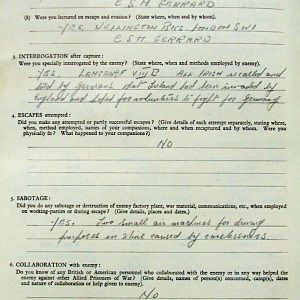 C.S.M. GERRARD
(b) Were you lectured on escape and evasion? (State where, when and by whom).
YES. WELLINGTON BKS. LONDON SW1
C.S.M. GERRARD
3. INTERROGATION after capture:
Were you specially interrogated by the enemy? (State where, when and methods employed by enemy).
YES. LAMSDORF VIII B ALL IRISH called and
told by Germans that Ireland had been invaded by
England and asked for volunteers to fight for Germany
4. ESCAPES attempted:
Did you make any attempted or partly successful escapes? (Give details of each attempt separately, stating where,
when, method employed, names of your companions, where and when recaptured and by whom. Were you
physically fit? What happened to your companions?)
NO
5. SABOTAGE:
Did you do any sabotage or destruction of enemy factory plant, war material, communications, etc., when employed
on working-parties or during escape? (Give details, places and dates.)
YES. Two small air machines for driving
purposes in mine caused by carelessness.
6. COLLABORATION with enemy:
Do you know of any British or American personnel who collaborated with the enemy or in any way helped the
enemy against other Allied Prisoners of War? (Give details, names of person(s) concerned, camp(s), dates
and nature of collaboration or help given to enemy).
NO